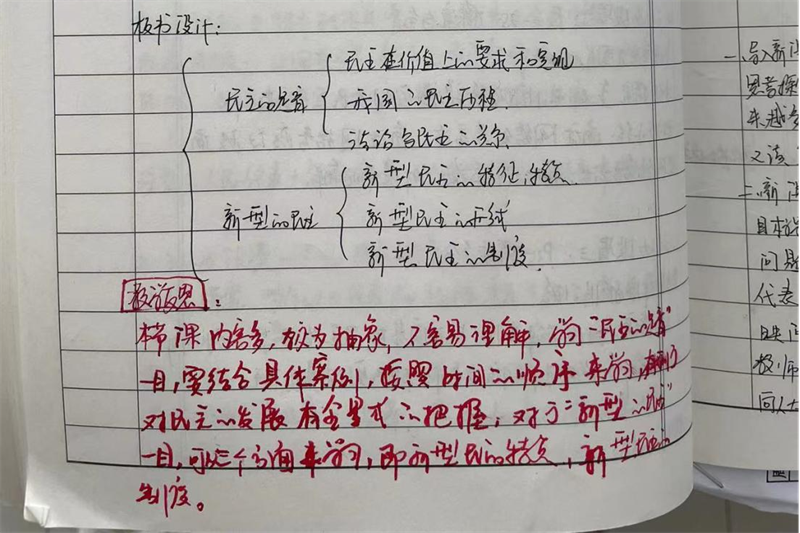 板书设计：
民主的足音
民主在价值上的要求和实现
我国的民主历程
法治与民主的关系
新型的民主
新型民主的特征，特点
新型民主的形式
新型民主的制度
教学反思：
本节课内容多，较为抽象，不容易理解，学习"民主的足音"
一目，要结合具体案例，按照时间的顺序来学习，有利于
对民主的发展有全景式的把握，对于"新型的民主"
一目，可从三个方面来学习，即新型民主的特点，新型民主的
制度。
一、导入新
思考探
来越
二、新
目标
问题
代表
教师